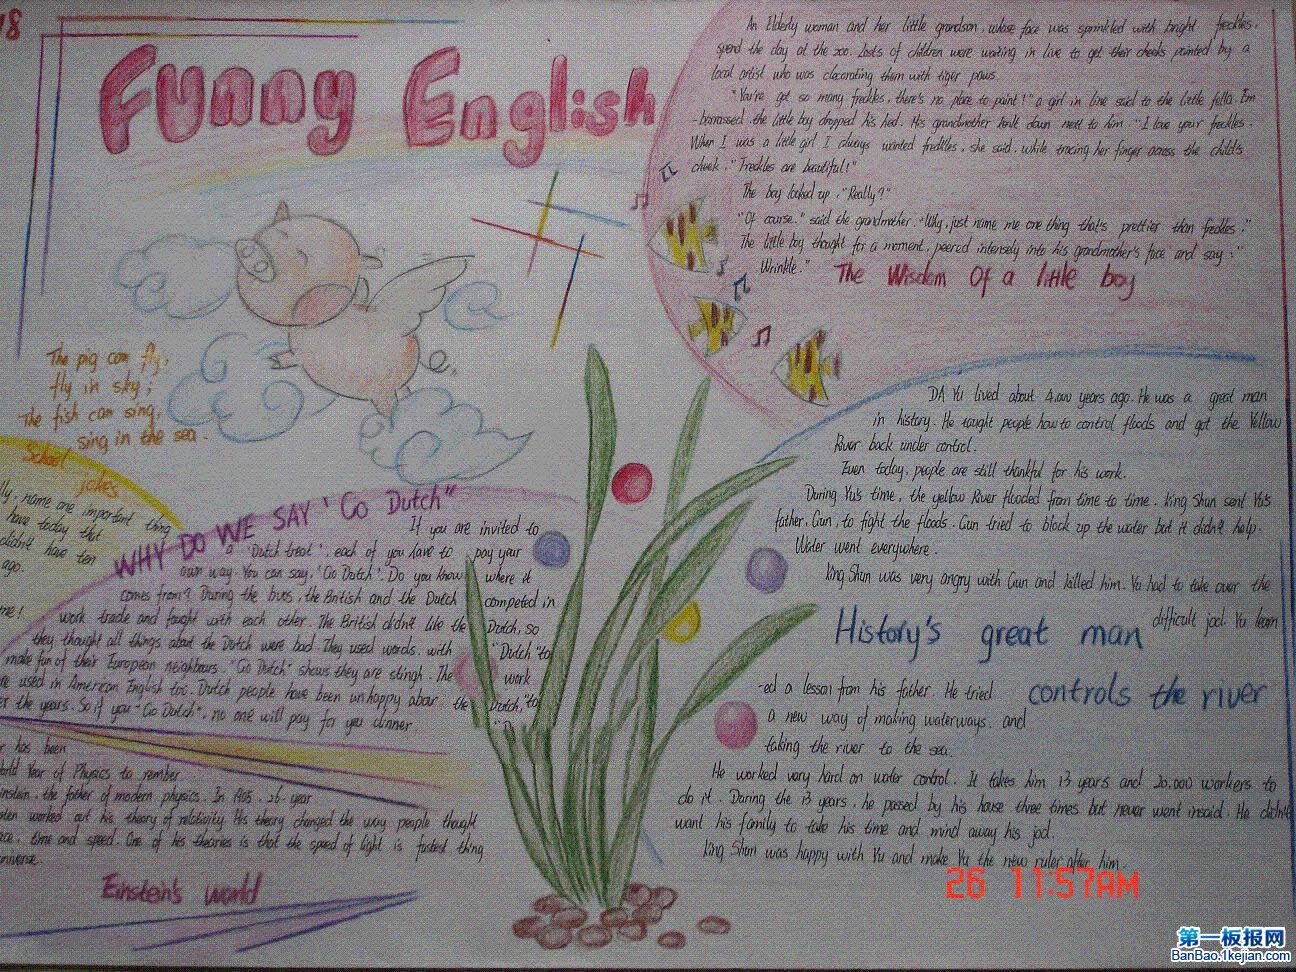 18
Funny English
An Elderly woman and her little grandson, whose face was sprinkled with bright freckles,
spend the day at the zoo. Lots of children were waiting in live to get their cheeks painted by a
local artist who was clacorating them with tiger paws.
"You're got so many freckles, there's no place to paint!" a girl in line said to the little fella. Em
-barrassed, the little boy dropped his hed. His grandmother knelt down next to him "I love your freckles.
When I was a little girl I always wanted freckles, she said, while tracing her finger across the child's
cheek, "Freckles are beautiful!"
The boy looked up, "Really?"
"Of course," said the grandmother. "Why, just name me one thing that's prettier than freckles."
The little boy thought for a moment, peered intensely into his grandmother's face and say:"
Wrinkle."
The Wisdom Of a little boy
The pig can fly,
fly in sky;
The fish can sing,
sing in the sea.
School
jokes
name are important thing
have today that
didn't have ten
ago.
me!
WHY DO WE SAY "Go Dutch"
If you are invited to
a "Dutch treat", each of you have to pay your
own way. You can say, "Go Dutch". Do you know where it
comes from? During the the British and the Dutch competed in
work trade and fought with each other. The British didn't like the Dutch, so
they thought all things about the Dutch were bad. They used words, with "Dutch "to
make fun of their European neighbours. "Go Dutch" shows they are stingh. The work
are used in American English too. Dutch people have been unhappy abour the Dutch,"to
the years. So if you "Go Dutch", no one will pay for you dinner.
has been
World Year of Physics to rember
Einstein, the father of modern physics. In 1905, 26-year
worked out his theory of relativity. His theory changed the way people thought
time and speed. One of his theories is that the speed of light is fastest thing
universe.
Einstein's world
DA Yu lived about 4,000 years ago. He was a great man
in history. He taught people how to control floods and got the Yellow
River back under control.
Even today, people are still thankful for his work.
During Yu's time, the yellow River flooded from time to time. King Shun sent Yu's
father, Gun, to fight the floods. Gun tried to block up the water but it didn't help.
Water went everywhere.
King Shun was very angry with Gun and killed him. Yu had to take over the
difficult jod. Yu learn
History's great man
controls the river
-ed a lesson from his father. He tried
a new way of making waterways, and
taking the river to the sea.
He worked very hard on water control. It takes him 13 years and 20,000 workers to
do it. During the 13 years, he passed by his house three times but never went insaid. He didn't
want his family to take his time and mind away his jod.
King Shun was happy with Yu and make Yu the new ruler after him.
26 11:57AM
第一板报网
BanBao.1kejian.com